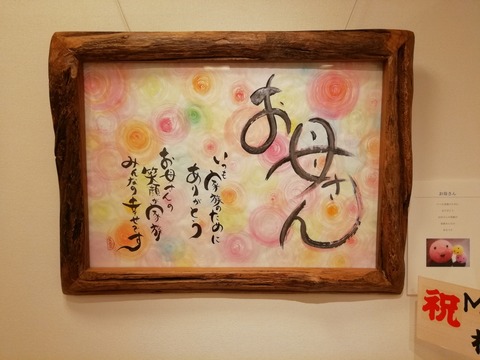 お母さん
いつも家族のために
ありがとう
お母さんの
笑顔で家族
みんな幸せです
お母さん
祝